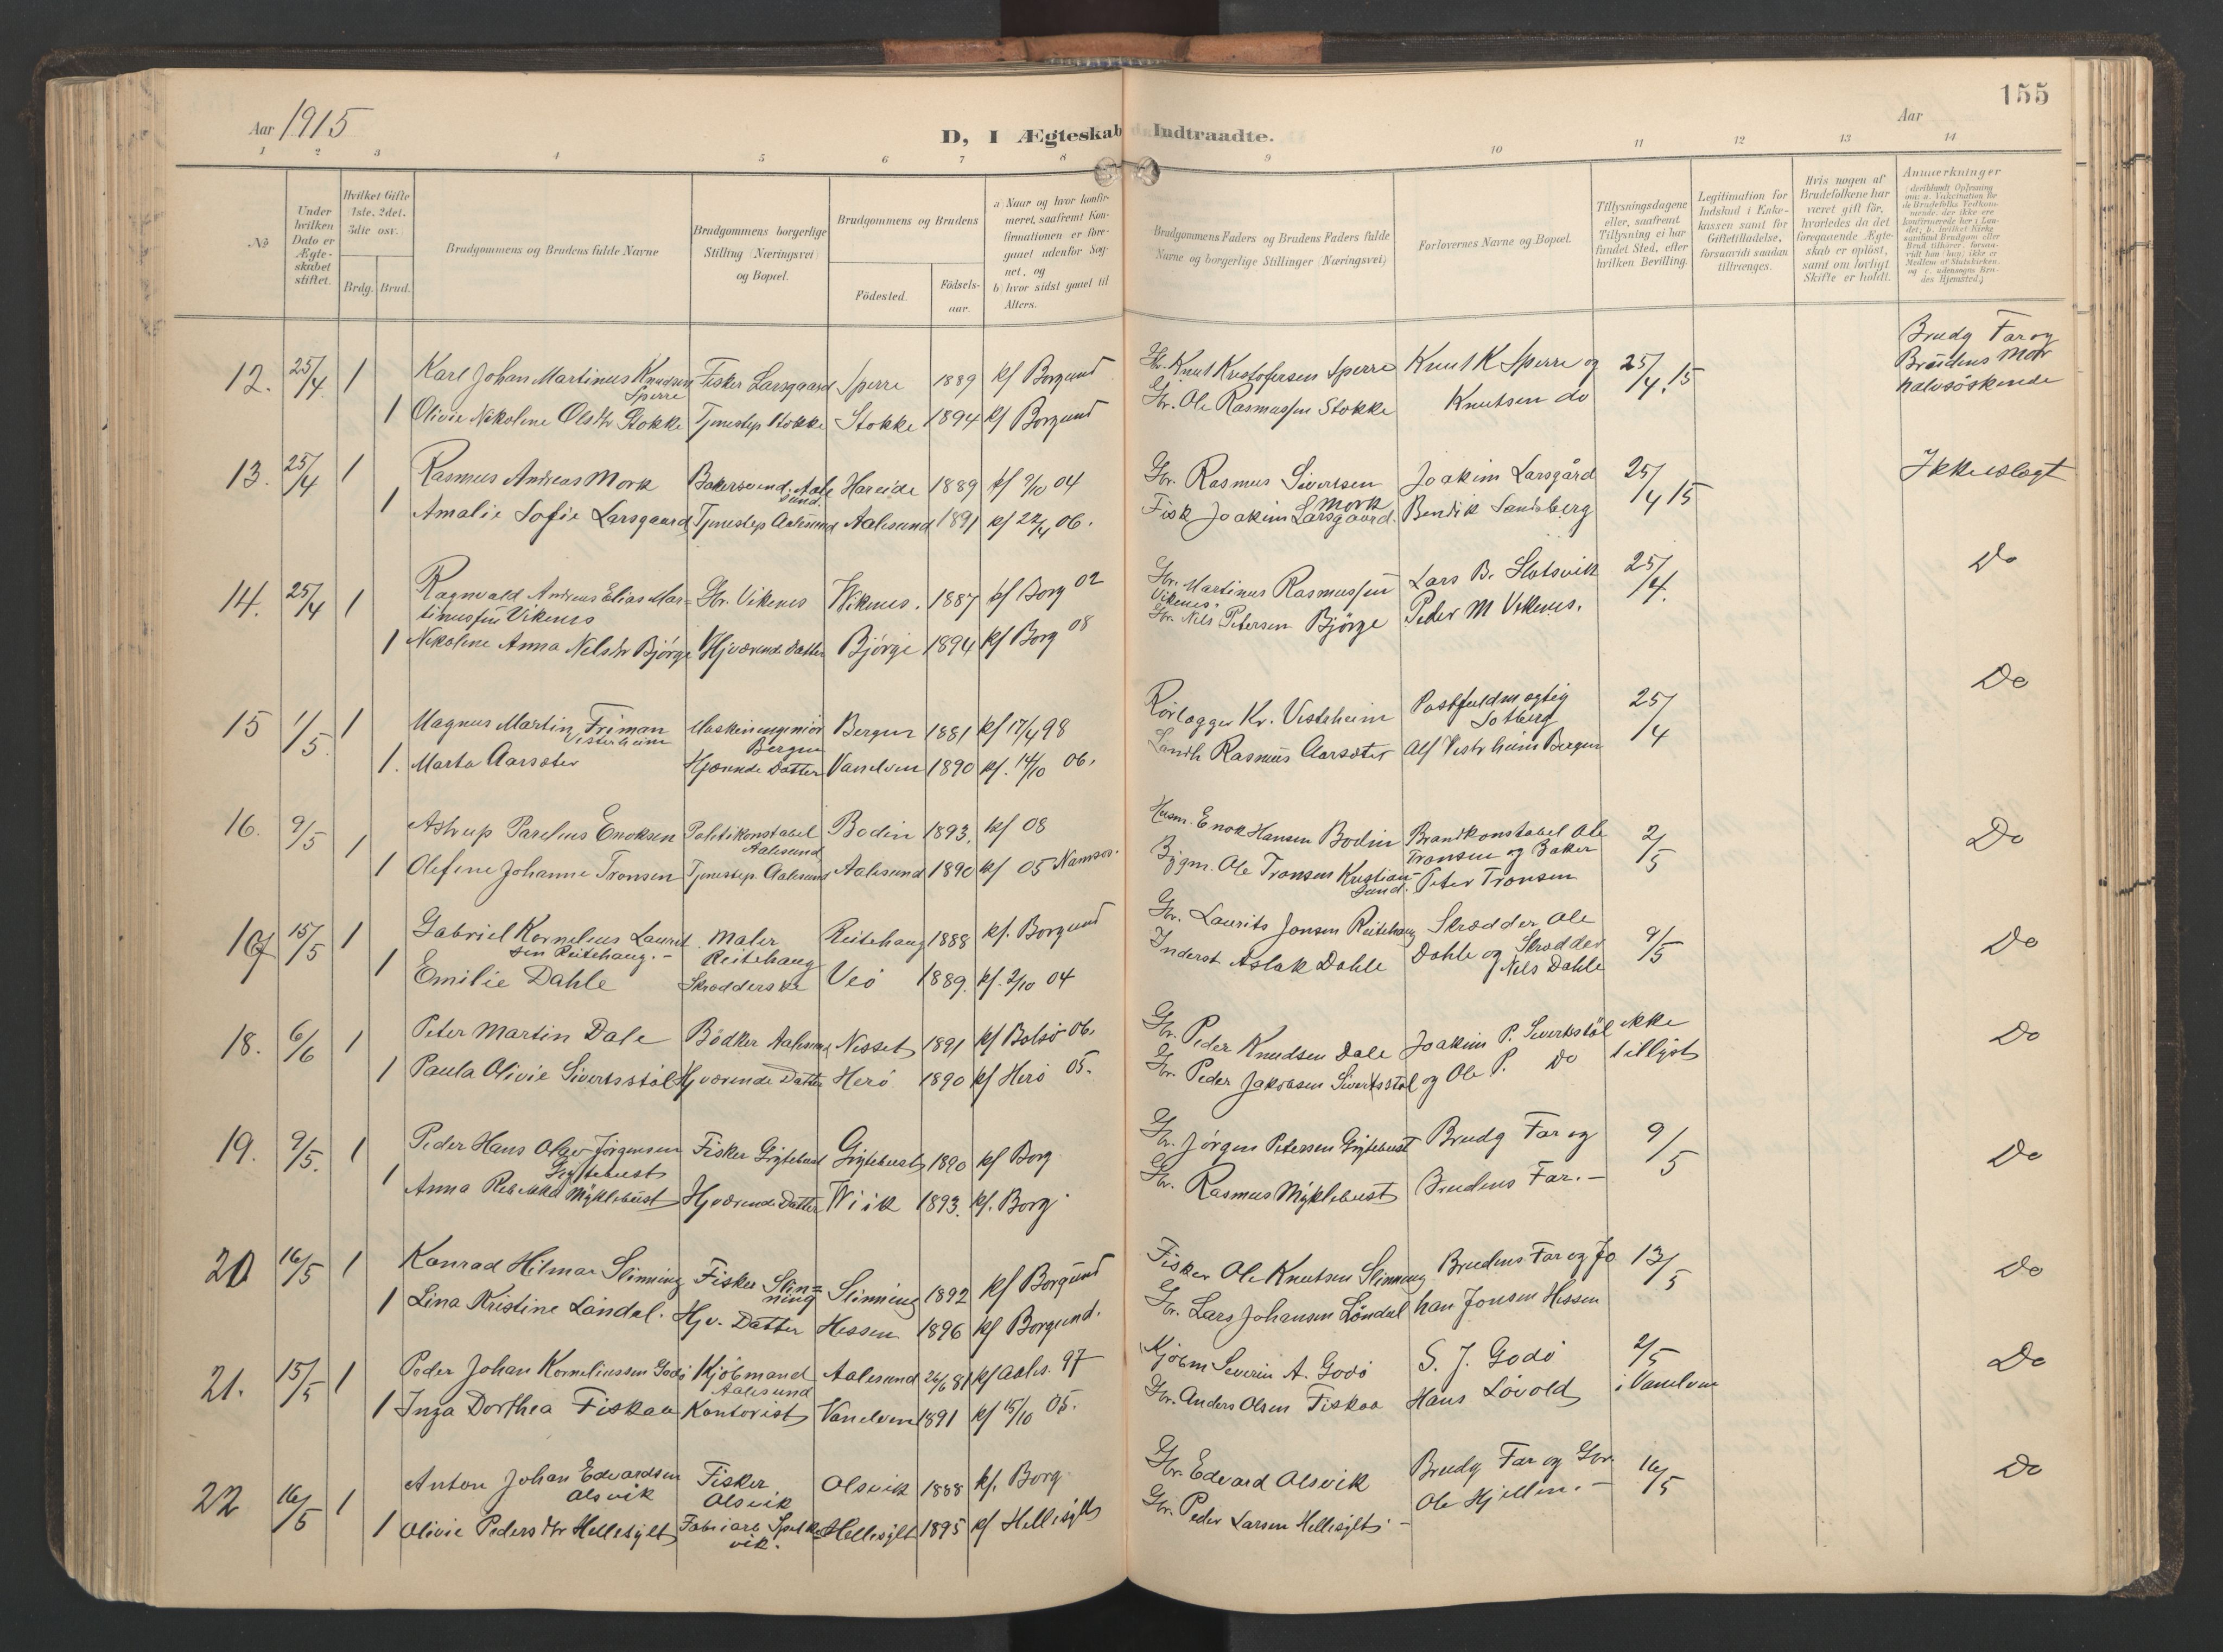 155
Aar 1915
Aar
D, I Ægteskab Indtraadte.
1 2 3 4 5 6 7 8 9 10 11 12 13 14
No
Under hvilken Dato er Ægteskabet stiftet.
Hvilket Gifte 1ste, 2det, 3die osv.
Brdg. Brud.
Brudgommens og Brudens fulde Navne
Brudgommens borgerlige Stilling (Næringsvei) og Bopæl.
Brudgommens og Brudens
Födested.
Födselsaar.
a) Naar og hvor konfirmeret, saafremt Konfirmationen er foregaaet udenfor Sognet, og
b) hvor sidst gaaet til Alters.
Brudgommens Faders og Brudens Faders fulde Navne og borgerlige Stillinger (Næringsvei)
Forlovernes Navne og Bopæl.
Tillysningsdagene eller, saafremt Tillysning ei har fundet Sted, efter hvilken Bevilling.
Legitimation for Indskud i Enkekassen samt for Giftetilladelse, forsaavidt saadan tiltrænges.
Hvis nogen af Brudefolkene har været gift før, hvorledes da det foregaaende Ægteskab er oplöst, samt om lovligt Skifte er holdt.
Anmærkninger
12. 25/4 1 Karl Johan Martinus Knudsen Sperre Fisker Larsgaard Sperre 1889 kf Borgund Gbr. Knut Kristofersen Sperre Knut K Sperre og 25/4.15 Brudg Far og Brudens Mor halvsöskende
1 Olivie Nikoline Olsdtr Stokke Tjenestep Stokke Stokke 1894 kf Borgund Gbr. Ole Rasmussen Stokke Knutsen do
13. 25/4 1 Rasmus Andreas Mork Bakersvend Aalesund Hareide 1889 kf 9/10 04 Gbr. Rasmus Sivertsen Mork Joakim Larsgård 25/4 15 Ikke slegt
1 Amalie Sofie Larsgaard Tjenestep Aalesund Aalesund 1891 kf 22/4 06. Fisk Joakim Larsgaard. Bendik Sandsberg
14. 25/4 1 Ragnvald Andreas Elias Martinussen Vikenes Gbr. Vikenes Wikenes. 1887 kf Borg 02 Gbr. Martinus Rasmussen Vikenes Lars B. Slotsvik 25/4. Do
1 Nikoline Anna Nelsdtr Björge Hjværende Datter Björge 1894 kf Borg 08 Gbr. Nils Petersen Björge Peder M Vikenes.
15 1/5. 1 Magnus Martin Friman Vesterheim Maskiningeniör Bergen Bergen 1881 kf 17/4 98 Rörlægger Kr. Vestrheim Postfuldmægtig Solberg 25/4 Do
1. Marta Aarsæter Hjværende Datter Vanelven 1890 kf. 14/10 06. Landh Rasmus Aarsæter Alf Vestrheim Bergen
16. 9/5 1 Astrup Parelius Enoksen Politikonstabel Aalesund Bodin 1893. kf 08 Husm. Enok Hansen Bodin Brandkonstabel Ole Tronsen og Baker 2/5 Do
1 Olefine Johanne Tronsen Tjenestep. Aalesund Aalesund 1890 kf 05 Namsos. Bygm. Ole Tronsen Kristiansund. Peter Tronsen
17 15/5 1 Gabriel Kornelius Lauritsen Reitehaug.- Maler Reitehaug Reitehaug 1888 kf. Borgund Gbr. Laurits Jonsen Reitehaug Skrædder Ole 9/5 Do
1 Emilie Dahle Skrædderske Veö 1889. kf. 2/10 04 Inderst Aslak Dahle Dahle og Skrædder Nils Dahle
18. 6/6 1 Peter Martin Dale Bödker Aalesund Nesset 1891 kf Bolsö 06. Gbr. Peder Knudsen Dale Joakim P. Sivertsstöl ikke Do
1 Paula Olivie Sivertsstöl Hjværende Datter Herö 1890 kf Herö 05. Gbr. Peder Jakobsen Sivertsstöl og Ole P. Do tillyst
19. 9/5. 1 Peder Hans Olav Jörgensen Gjytebust Fisker Gjytebust Gjytebust 1890 kf Borg Gbr. Jörgen Petersen Gjytebust Brudg Far og 9/5 Do
1 Anna Rebekka Myklebust Hjværende Datter Wiik 1893. kf. Borg Gbr. Rasmus Myklebust Brudens Far. -
20 16/5 1 Konrad Hilmar Slinning Fisker Slinning Slinning 1892 kf Borgund Fisker Ole Knutsen Slinning Brudens Far og Jo 13/5 Do
1 Lina Kristine Löndal. Hjv. Datter Hessen 1896 kf Borgund. Gbr. Lars Johansen Löndal han Jonsen Hessen
21. 15/5 1 Peder Johan Korneliussen Godö Kjöbmand Aalesund Aalesund 26/6 81 kf Aales. 97 Kjöbm Severin A. Godö S. J. Godö 2/5 Do
1 Inga Dorthea Fiskaa Kontorist Vanelven 1891 kf 15/10 05. Gbr. Anders Olsen Fiskaa Hans Lövold i Vanelven
22 16/5 1 Anton Johan Edvardsen Olsvik Fisker Olsvik Olsvik 1888 kf. Borg Gbr. Edvard Olsvik Brudg Far og Gbr. 16/5 Do
1 Olivie Pedersdtr Hellesylt Fabriarb Spelkavik. Hellesylt 1895 kf Hellesylt Gbr. Peder Larsen Hellesylt - Ole Hjellen. -